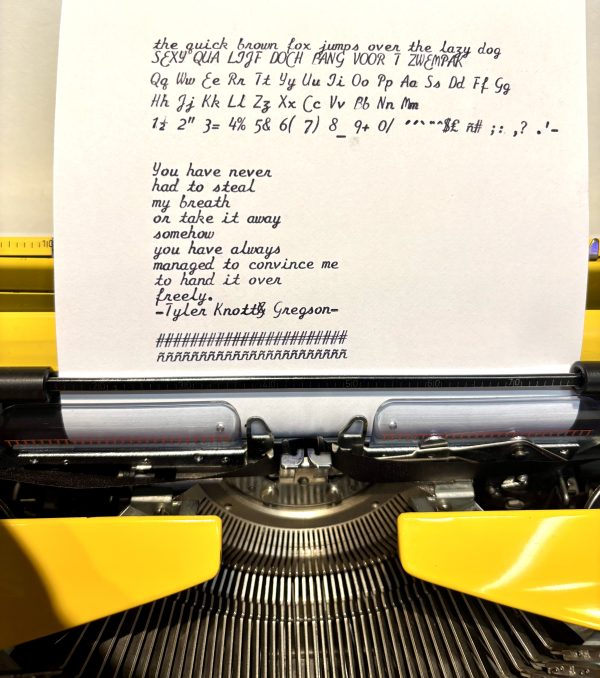 the quick brown fox jumps over the lazy dog
SEXY QUA LIJF DOCH BANG VOOR T ZWEMPAK
Qq Ww Ee Rr Tt Yy Uu Ii Oo Pp Aa Ss Dd Ff Gg
Hh Jj Kk Ll Zz Xx Cc Vv Bb Nn Mm
1½ 2" 3= 4% 5& 6( 7) 8_ 9+ 0/ $£ ñ# ;: ,? .'-
You have never
had to steal
my breath
or take it away
somehow
you have always
managed to convince me
to hand it over
freely.
-Tyler Knott Gregson-
######################
ññññññññññññññññññññññ